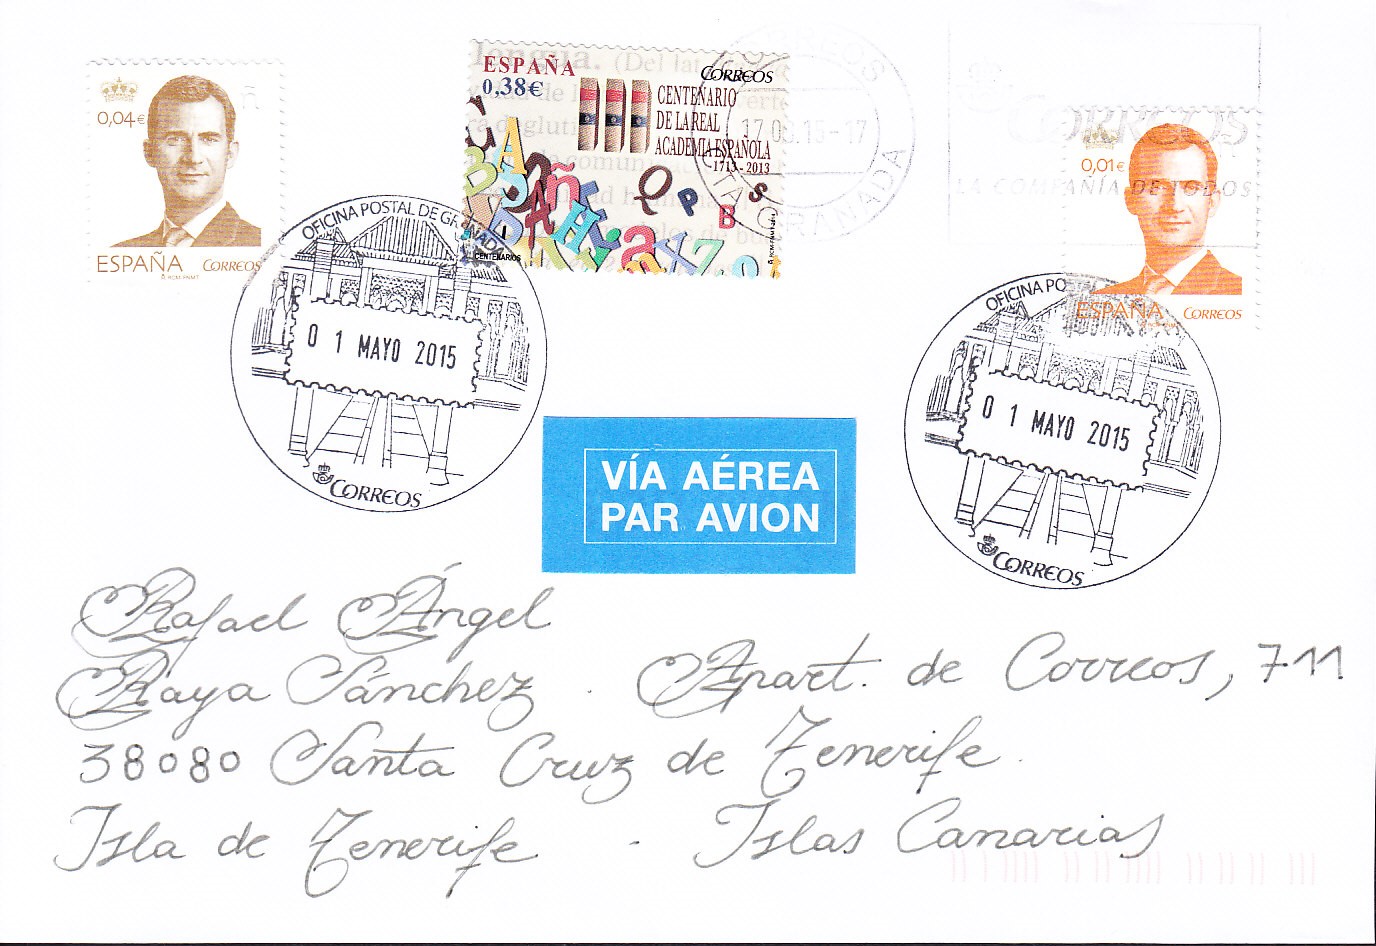 0,04€
ESPAÑA CORREOS
lengua. (Del lat
ESPAÑA
0,38€
CORREOS
III CENTENARIO
DE LA REAL
ACADEMIA ESPAÑOLA
1713 - 2013
CENTENARIOS
CORREOS
17 0 .15-17
GRANADA
CORREOS
LA COMPAÑÍA DE TODOS
0,01€
ESPAÑA CORREOS
OFICINA POSTAL DE GRANADA
0 1 MAYO 2015
CORREOS
OFICINA PO
0 1 MAYO 2015
CORREOS
VÍA AÉREA
PAR AVION
Rafael Ángel
Raya Sánchez . Apart. de Correos, 711
38080 Santa Cruz de Tenerife .
Isla de Tenerife . Islas Canarias